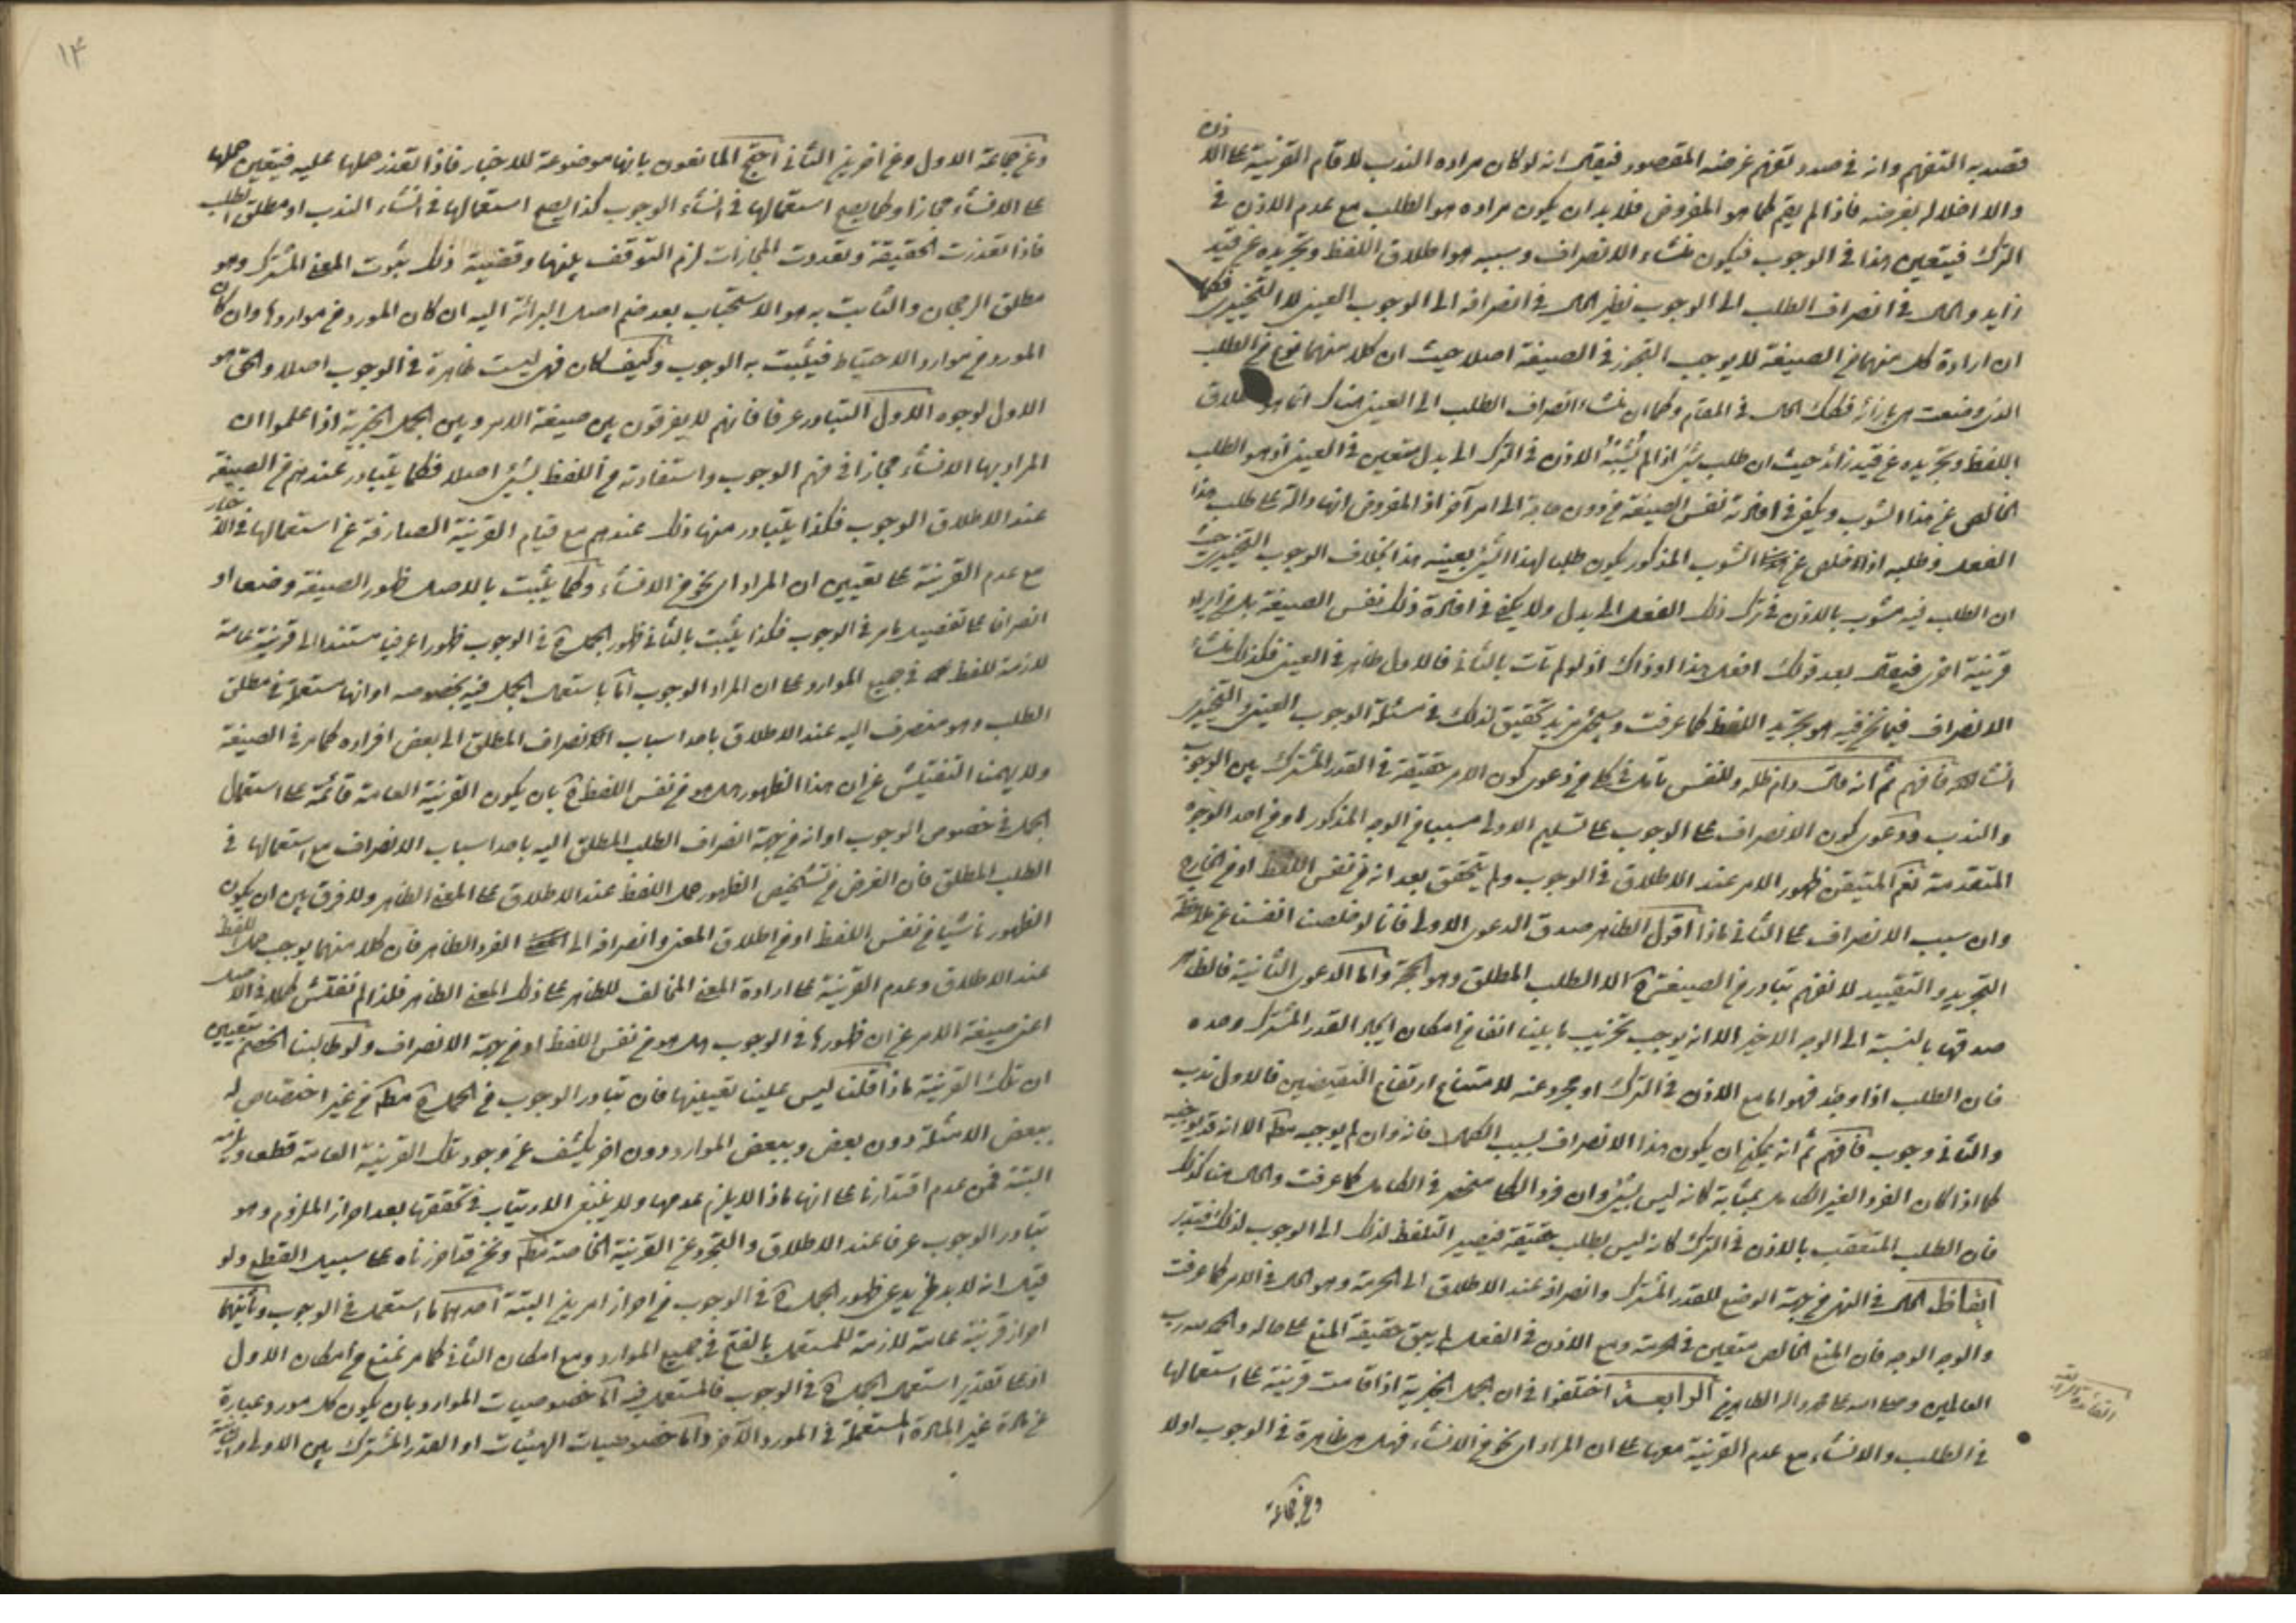 قصد به التفهم وانه في صدد تفهم غرضه المقصود فيقال انه لو كان مراده الندب لاقام القرينة على الاذن
والا اخلاله بغرضه فاذا لم يقم كما هو المفروض فلا بد ان يكون مراده هو الطلب مع عدم الاذن في
الترك فيتعين هذا في الوجوب فيكون منشاء الانصراف وسببه هو اطلاق اللفظ وتجريده عن قيد
زايد والحال في انصراف الطلب الى الوجوب نظير الحال في انصرافه الى الوجوب العيني لا التخييري فكما
ان ارادة كل منهما من الصيغة لا يوجب التجوز في الصيغة اصلا حيث ان كلا منهما نوع من الطلب
الذي وضعت هي بازائه فكذلك الحال في المقام وكما ان منشاء انصراف الطلب الى العيني هناك انما هو اطلاق
اللفظ وتجريده عن قيد زائد حيث ان طلب شئ اذا لم يثبت الاذن في الترك الى بدل متعين في العيني اذ هو الطلب
الخالص عن هذا الشوب ويكفي في افادته نفس الصيغة من دون حاجة الى امر آخر اذ المفروض انها دالة على طلب هذا
الفعل وطلبه اذا خلص عن الشوب المذكور يكون طلبا لهذا الشئ بعينه هذا بخلاف الوجوب التخييري حيث
ان الطلب فيه مشوب بالاذن في ترك ذلك الفعل الى بدل ولا يكفي في افادة ذلك نفس الصيغة بل من ايراد
قرينة اخرى فيقال بعد قولك افعل هذا او ذاك اذ لو لم تات بالثاني فالاول ظاهر في العيني فكذلك منشاء
الانصراف فيما نحن فيه هو تجريد اللفظ كما عرفت وسيجئ مزيد تحقيق لذلك في مسئلة الوجوب العيني والتخييري
انشاء الله فافهم ثم انه قال دام ظله وللنفس تامل في كل من دعوى كون الامر حقيقة في القدر المشترك بين الوجوب
والندب ودعوى كون الانصراف على الوجوب على تسليم الاولى مسببا من الوجه المذكور او من احد الوجوه
المتقدمة نعم المتيقن ظهور الامر عند الاطلاق في الوجوب ولم يتحقق بعد انه من نفس اللفظ او من الخارج
وان سبب الانصراف على الثاني ماذا اقول الظاهر صدق الدعوى الاولى فانا لو خلصنا انفسنا عن ملاحظة
التجريد والتقييد لا نفهم تبادر من الصيغة الا الطلب المطلق وهو الحجة واما الدعوى الثانية فالظاهر
صدقها بالنسبة الى الوجه الاخير الا انه يوجب تخريب ما بيناه انفا من امكان ايجاد القدر المشترك وحده
فان الطلب اذا وجد فهو اما مع الاذن في الترك او مجرد عنه لامتناع ارتفاع النقيضين فالاول ندب
والثاني وجوب فافهم ثم انه يمكن ان يكون هذا الانصراف بسبب الكمال فانه وان لم يوجبه مط الا انه قد يوجبه
كما اذا كان الفرد الغير الكامل بمثابة كانه ليس بشئ وان فرد الكلي منحصر في الكامل كما عرفت والحال هنا كذلك
فان الطلب المتعقب بالاذن في الترك كانه ليس بطلب حقيقة فيصير التلفظ لذلك الى الوجوب لذلك فتدبر
ايقاظ الحال في النهي من جهة الوضع للقدر المشترك وانصرافه عند الاطلاق الى الحرمة وهو الحال في الامر كما عرفت
والوجه الوجه فان المنع الخالص متعين في الحرمة ومع الاذن في الفعل لم يبق حقيقة المنع على حاله والحمد لله رب
العالمين وصلى الله على محمد واله الطاهرين الرابعة اختلفوا في ان الجمل الخبرية اذا قامت قرينة على استعمالها
في الطلب والانشاء مع عدم القرينة معها على ان المراد اي نحو من الانشاء فهل هي ظاهرة في الوجوب اولا
الفائدة الرابعة
وعن جماعة
١٤
وعن جماعة الاول وعن اخرين الثاني احتج المانعون بانها موضوعة للاخبار فاذا تعذر حملها عليه فيتعين حملها
على الانشاء مجازا وكما يصح استعمالها في انشاء الوجوب كذا يصح استعمالها في انشاء الندب او مطلق الطلب
فاذا تعذرت الحقيقة وتعددت المجازات لزم التوقف بينها وقضية ذلك ثبوت المعنى المشترك وهو
مطلق الرجحان والثابت به هو الاستحباب بعد ضم اصل البرائة اليه ان كان المورد من مواردها وان كان
المورد من موارد الاحتياط فيثبت به الوجوب وكيف كان فهي ليست ظاهرة في الوجوب اصلا والحق هو
الاول لوجوه الاول التبادر عرفا فانهم لا يفرقون بين صيغة الامر وبين الجمل الخبرية اذا علموا ان
المراد بها الانشاء مجازا في فهم الوجوب واستفادته من اللفظ بشئ اصلا فكما يتبادر عندهم من الصيغة
عند الاطلاق الوجوب فكذا يتبادر منها ذلك عندهم مع قيام القرينة الصارفة عن استعمالها في الاخبار
مع عدم القرينة على تعيين ان المراد اي نحو من الانشاء وكما يثبت بالاصل ظهور الصيغة وضعا او
انصرافا على تفصيل مر في الوجوب فكذا يثبت بالثاني ظهور الجملة في الوجوب ظهورا عرفيا مستندا الى قرينة عامة
لازمة للفظ في جميع الموارد على ان المراد الوجوب اما باستعمال الجمل فيه بخصوصه او انها مستعملة في مطلق
الطلب وهو منصرف اليه عند الاطلاق باحد اسباب انصراف المطلق الى بعض افراده كما مر في الصيغة
ولا يهمنا التفتيش عن ان هذا الظهور هل هو من نفس اللفظ بان يكون القرينة العامة قائمة على استعمال
الجمل في خصوص الوجوب او انه من جهة انصراف الطلب المطلق اليه باحد اسباب الانصراف مع استعمالها في
الطلب المطلق فان الغرض من تشخيص الظهور حمل اللفظ عند الاطلاق على المعنى الظاهر ولا فرق بين ان يكون
الظهور ناشيا من نفس اللفظ او من اطلاق المعنى وانصرافه الى الفرد الظاهر فان كلا منهما يوجب حمل اللفظ
عند الاطلاق وعدم القرينة على ارادة المعنى المخالف للظاهر على ذلك المعنى الظاهر فلذا لم نفتش كلا في الاصل
اعني صيغة الامر عن ان ظهورها في الوجوب هل هو من نفس اللفظ او من جهة الانصراف ولو طالبنا الخصم بتعيين
ان تلك القرينة ماذا قلنا ليس علينا تعيينها فان تبادر الوجوب من الجملة مط من غير اختصاص له
ببعض الامثلة دون بعض وببعض الموارد دون اخر يكشف عن وجود تلك القرينة العامة قطعا
البتة فمن عدم اقتدارنا على انها ماذا لا يلزم عدمها ولا ينبغي الارتياب في تحققها بعد احراز الملزوم وهو
تبادر الوجوب عرفا عند الاطلاق والتجرد عن القرينة الخاصة مط ونحن قد احرزناه على سبيل القطع ولو
قيل انه لا بد لمن يدعي ظهور الجملة في الوجوب من احراز امرين البتة احدهما استعمال في الوجوب وثانيهما
احراز قرينة عامة لازمة للمستعمل بالفتح في جميع الموارد ومع امكان الثاني كما مر نمنع من امكان الاول
اذ على تقدير استعمال الجملة في الوجوب فالمستعمل فيه اما خصوصيات الموارد بان يكون كل مورد عبارة
عن مادة غير المادة المستعملة في المورد الآخر واما خصوصيات الهيئات او القدر المشترك بين الاولى والثانية